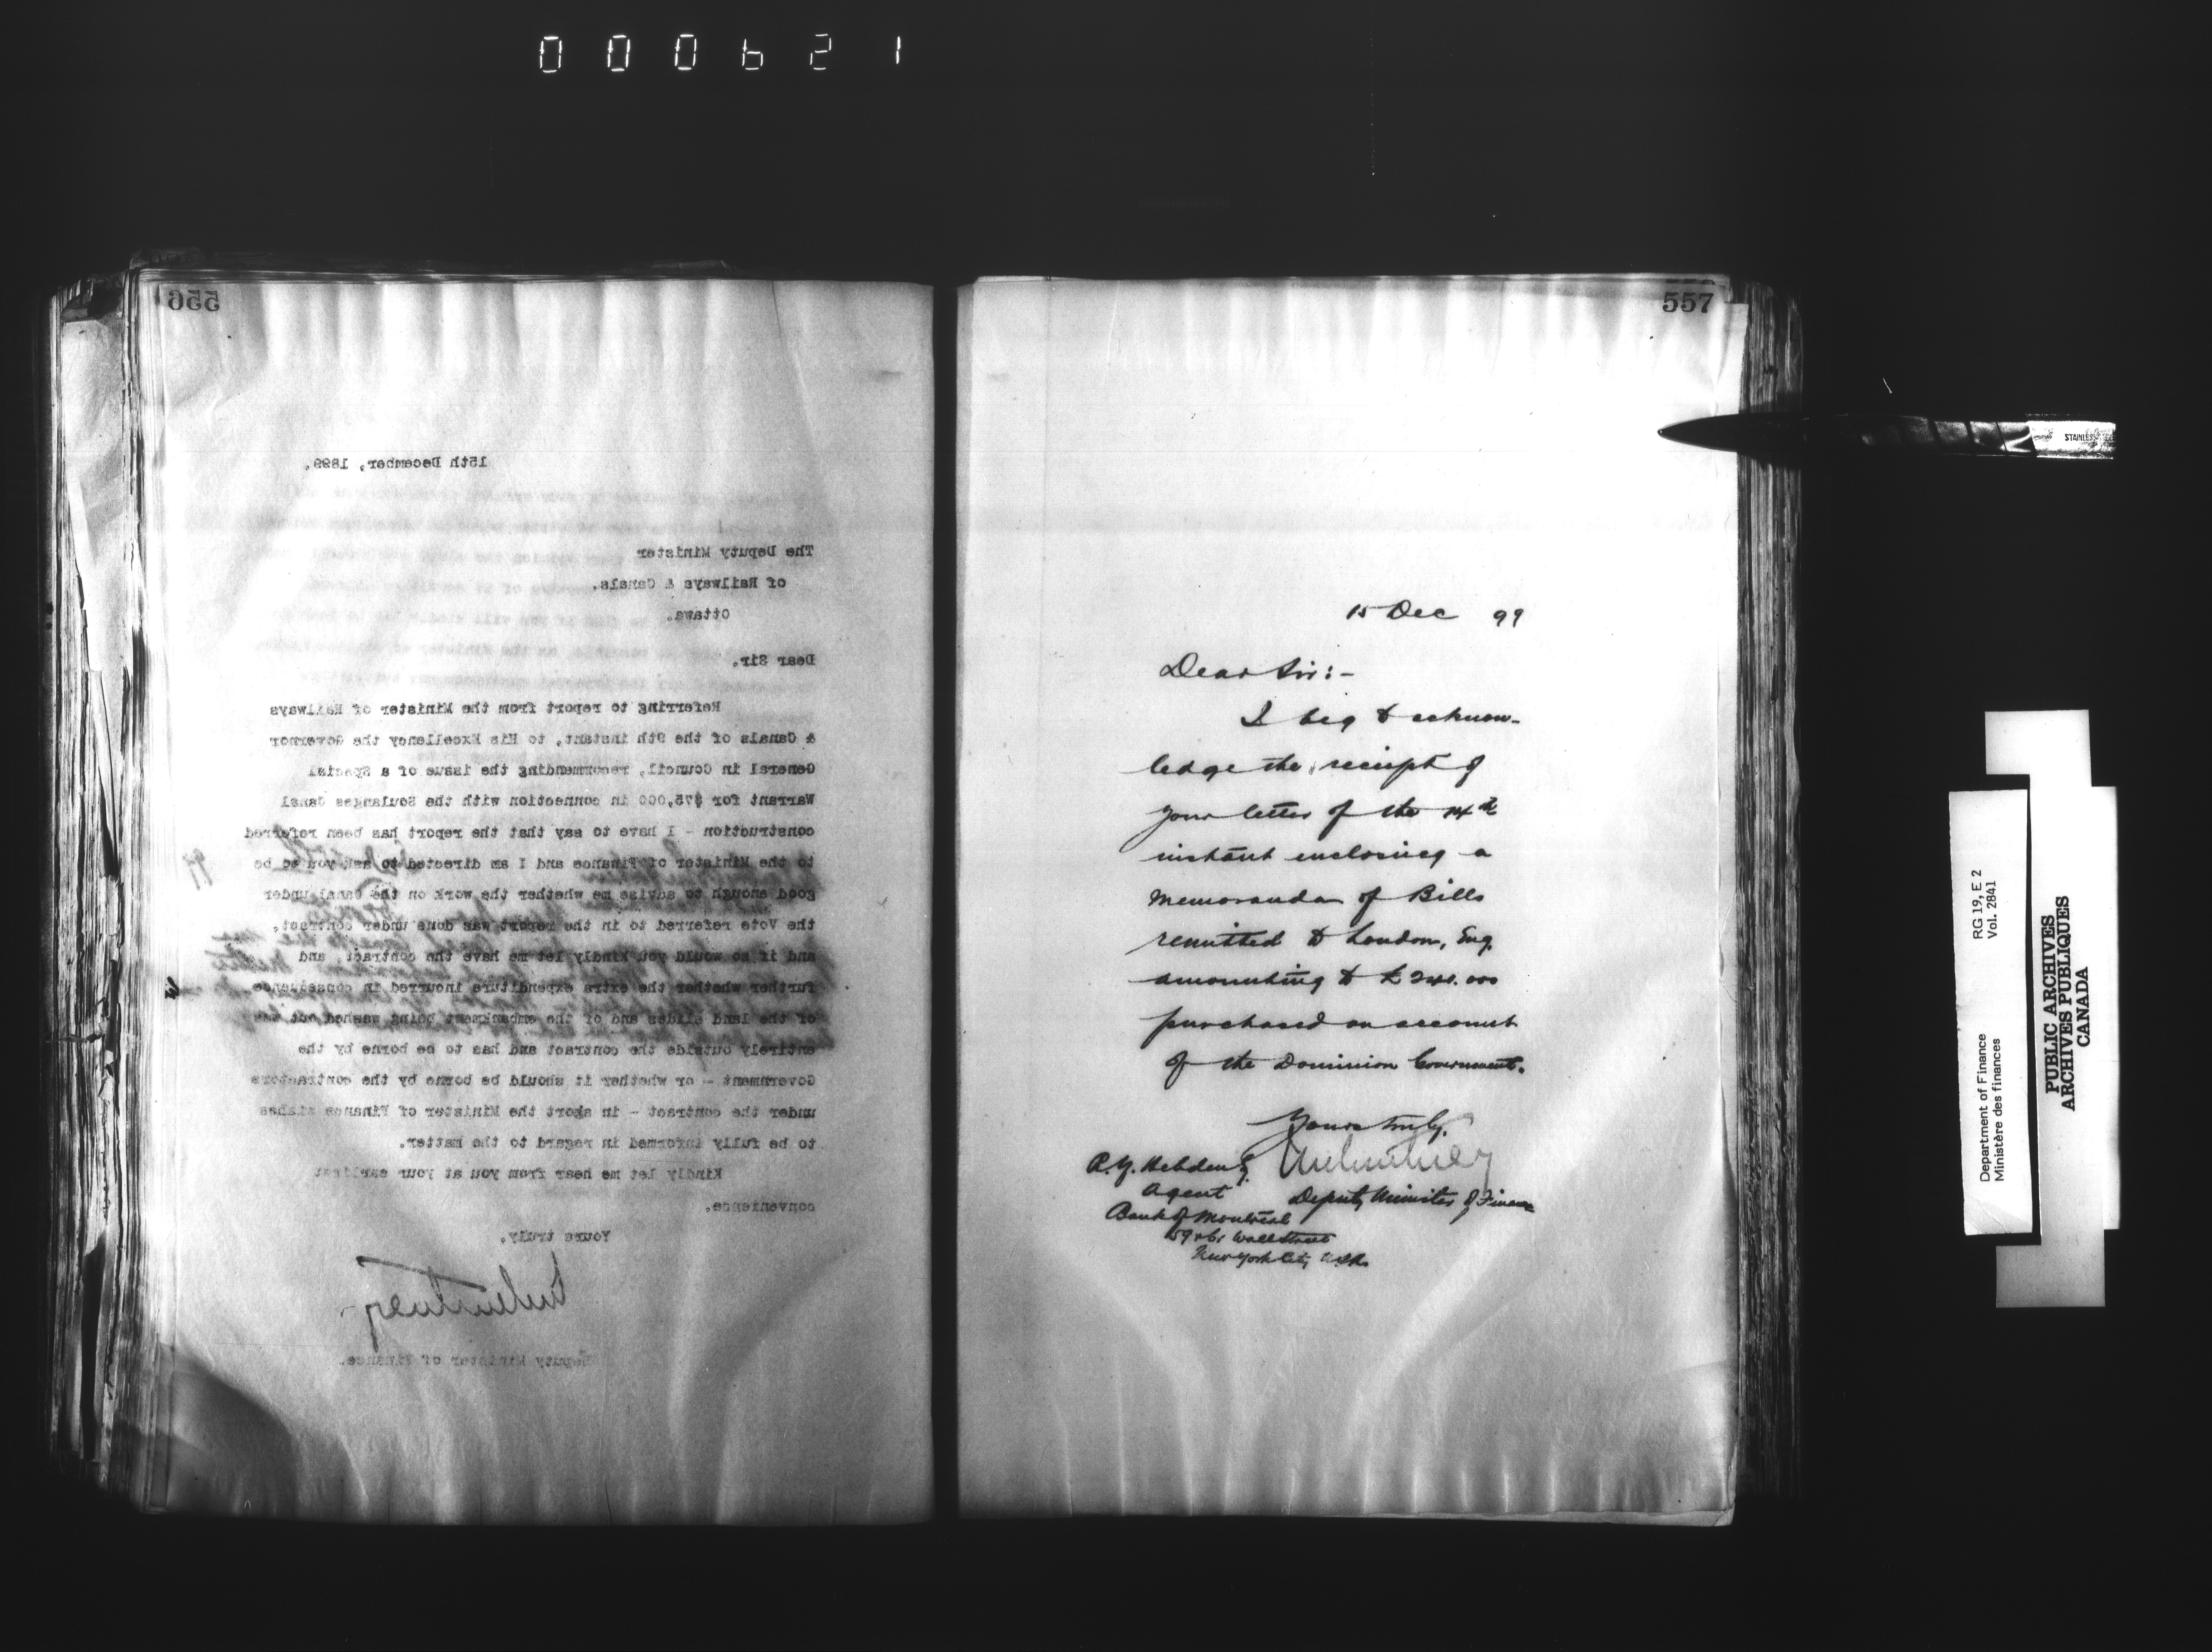 000621
556
15th December, 1899.
The Deputy Minister
of Railways & Canals.
Ottawa.
Dear Sir.
Referring to report from the Minister of Railways
& Canals of the 9th instant, to His Excellency the Governor
General in Council, recommending the issue of a Special
Warrant for $75,000 in connection with the Soulanges Canal
construction - I have to say that the report has been referred
to the Minister of Finance and I am directed to ask you to be
good enough to advise me whether the work on the Canal under
the Vote referred to in the report was done under contract,
and if so would you kindly let me have the contract, and
further whether the extra expenditure incurred in consequence
of the land slides and of the embankment being washed out was
entirely outside the contract and has to be borne by the
Government - or whether it should be borne by the contractors
under the contract - in short the Minister of Finance wishes
to be fully informed in regard to the matter.
Kindly let me hear from you at your earliest
convenience.
Yours truly,
Deputy Minister of Finance.
557
15 Dec 99
Dear Sir:-
I beg to acknow-
ledge the receipt of
your letter of the 14th
instant enclosing a
memoranda of Bills
remitted to London, Eng.
amounting to £240.000
purchased on account
of the Dominion Government.
Yours truly,
R. Y. Hebden Esq.
Agent
Deputy Minister of Finance
Bank of Montreal
59 & 61 Wall Street
New York City U.S.A.
STAINLESS STEEL
RG 19, E 2
Vol. 2841
Department of Finance
Ministère des finances
PUBLIC ARCHIVES
ARCHIVES PUBLIQUES
CANADA